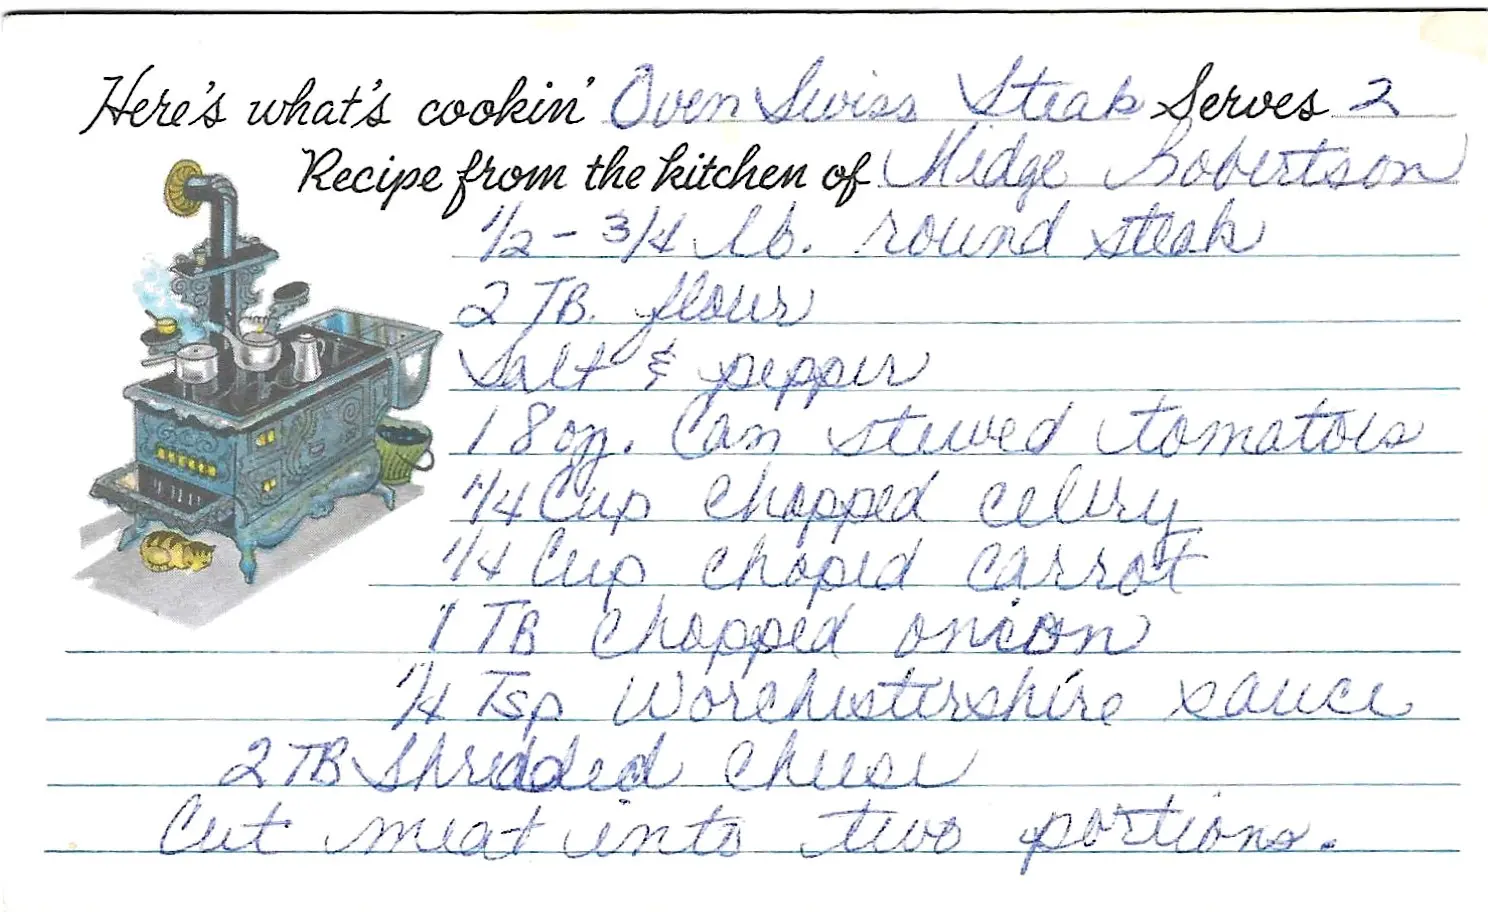 Here's what's cookin' Oven Swiss Steak Serves 2
Recipe from the kitchen of Midge Robertson
1/2 - 3/4 lb. round steak
2 TB. flour
Salt & pepper
1 8 oz. Can stewed tomatoes
1/4 Cup chopped celery
1/4 Cup choped carrot
1 TB chopped onion
1/4 Tsp Worchestershire sauce
2 TB Shredded cheese
Cut meat into two portions.